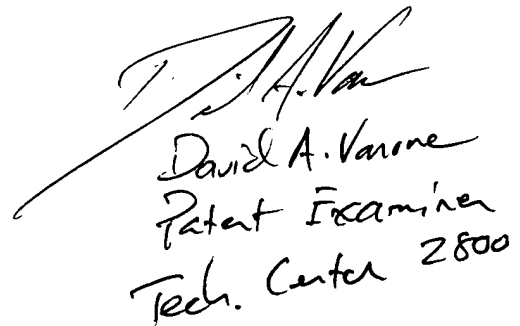 David A. Van
David A. Vanore
Patent Examiner
Tech. Center 2800